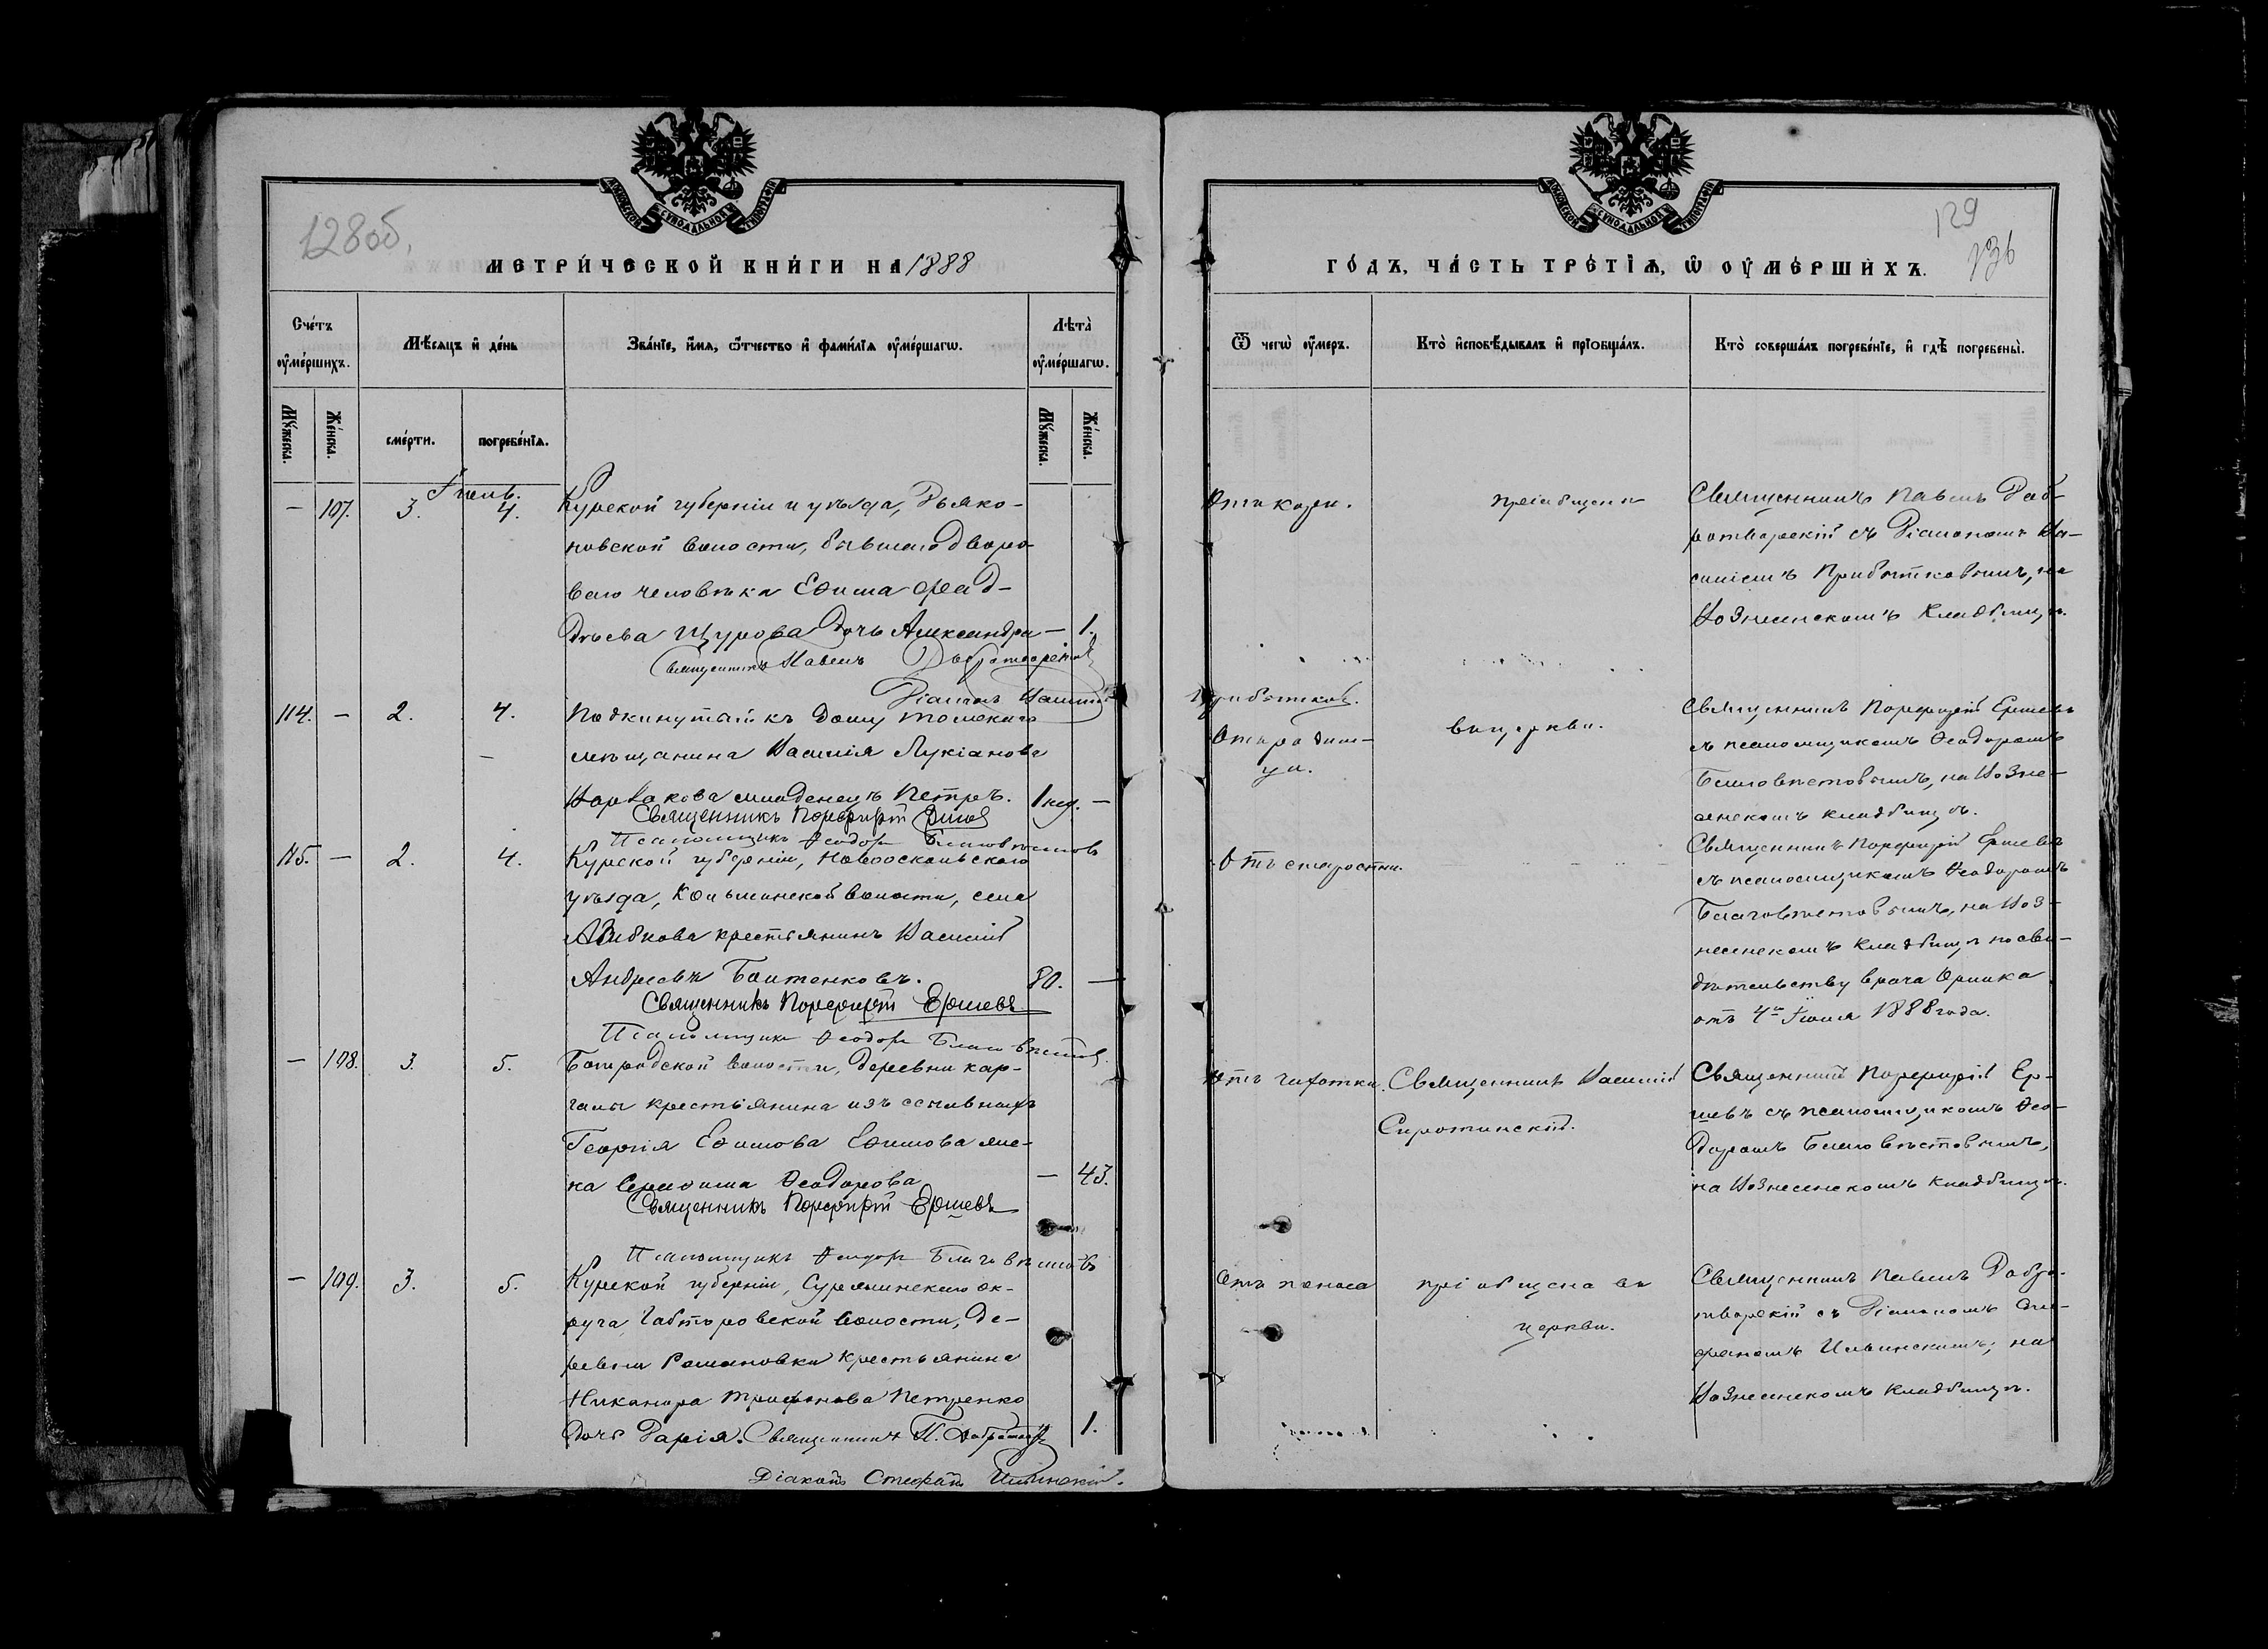 128об.
МОСКОВСКОЙ СѴНОДАЛЬНОЙ ТИПОГРАФІИ
МЕТРИЧЕСКОЙ КНИГИ НА 1888
Счетъ оумершихъ.
Мѣсяцъ и день
Званіе, имя, отчество и фамилія оумершагω.
Лѣта оумершагω.
Мужеска.
Женска.
смерти.
погребенія.
Мужеска.
Женска.
Іюнь.
— 107. 3. 4. Курской губерніи и уѣзда, Дьяко-
новской волости, бывшаго дворо-
ваго человѣка Ефима Фад-
дѣева Щурова дочь Александра — 1.
Священникъ Павелъ Добротворскій
Діаконъ Василій
114. — 2. 4. Подкинутый къ дому томскаго
мѣщанина Василія Лукіанова
младенецъ Петръ. 1 нед. —
Священникъ Порфирій Ершовъ
Псаломщикъ Ѳеодоръ Благовѣстовъ
115. — 2. 4. Курской губерніи, Новооскольскаго
уѣзда, волости, села
крестьянинъ Василій
Андреевъ 80. —
Священникъ Порфирій Ершевъ
Псаломщикъ Ѳеодоръ Благовѣстовъ.
— 108. 3. 5. Богородской волости, деревни Кар-
галы крестьянина изъ ссыльныхъ
Георгія Ефимова Ефимова же-
на Ѳеодорова — 43.
Священникъ Порфирій Ершевъ
Псаломщикъ Ѳеодоръ Благовѣстовъ
— 109. 3. 5. Курской губерніи, ок-
руга, волости, де-
ревни Романовки крестьянина
Никанора Трифонова Петренко
дочь Дарія. Священникъ П. 1.
Діаконъ Стефанъ Ильинскій.
129
136
МОСКОВСКОЙ СѴНОДАЛЬНОЙ ТИПОГРАФІИ
ГОДЪ, ЧАСТЬ ТРЕТІЯ, Ѡ ОУМЕРШИХЪ.
Ѿ чегω оумеръ.
Кто исповѣдывалъ и пріобщалъ.
Кто совершалъ погребеніе, и гдѣ погребены.
Отъ кори. пріобщена Священникъ Павелъ Доб-
ротворскій съ Діакономъ Ва-
силіемъ Прибытковымъ, на
Вознесенскомъ кладбищѣ.
Прибытковъ.
Отъ родим-
ца.
въ церкви.
Священникъ Порфирій Ершевъ
съ псаломщикомъ Ѳеодоромъ
Благовѣстовымъ, на Возне-
сенскомъ кладбищѣ.
Отъ старости.
Священникъ Порфирій Ершевъ
съ псаломщикомъ Ѳеодоромъ
Благовѣстовымъ, на Воз-
несенскомъ кладбищѣ по сви-
дѣтельству врача
отъ 4го Іюня 1888 года.
Отъ чахотки. Священникъ Василій
Сиротинскій.
Священникъ Порфирій Ер-
шевъ съ псаломщикомъ Ѳео-
доромъ Благовѣстовымъ,
на Вознесенскомъ кладбищѣ.
Отъ поноса пріобщена въ
церкви.
Священникъ Павелъ Добро-
творскій съ Діакономъ Сте-
фаномъ Ильинскимъ, на
Вознесенскомъ кладбищѣ.